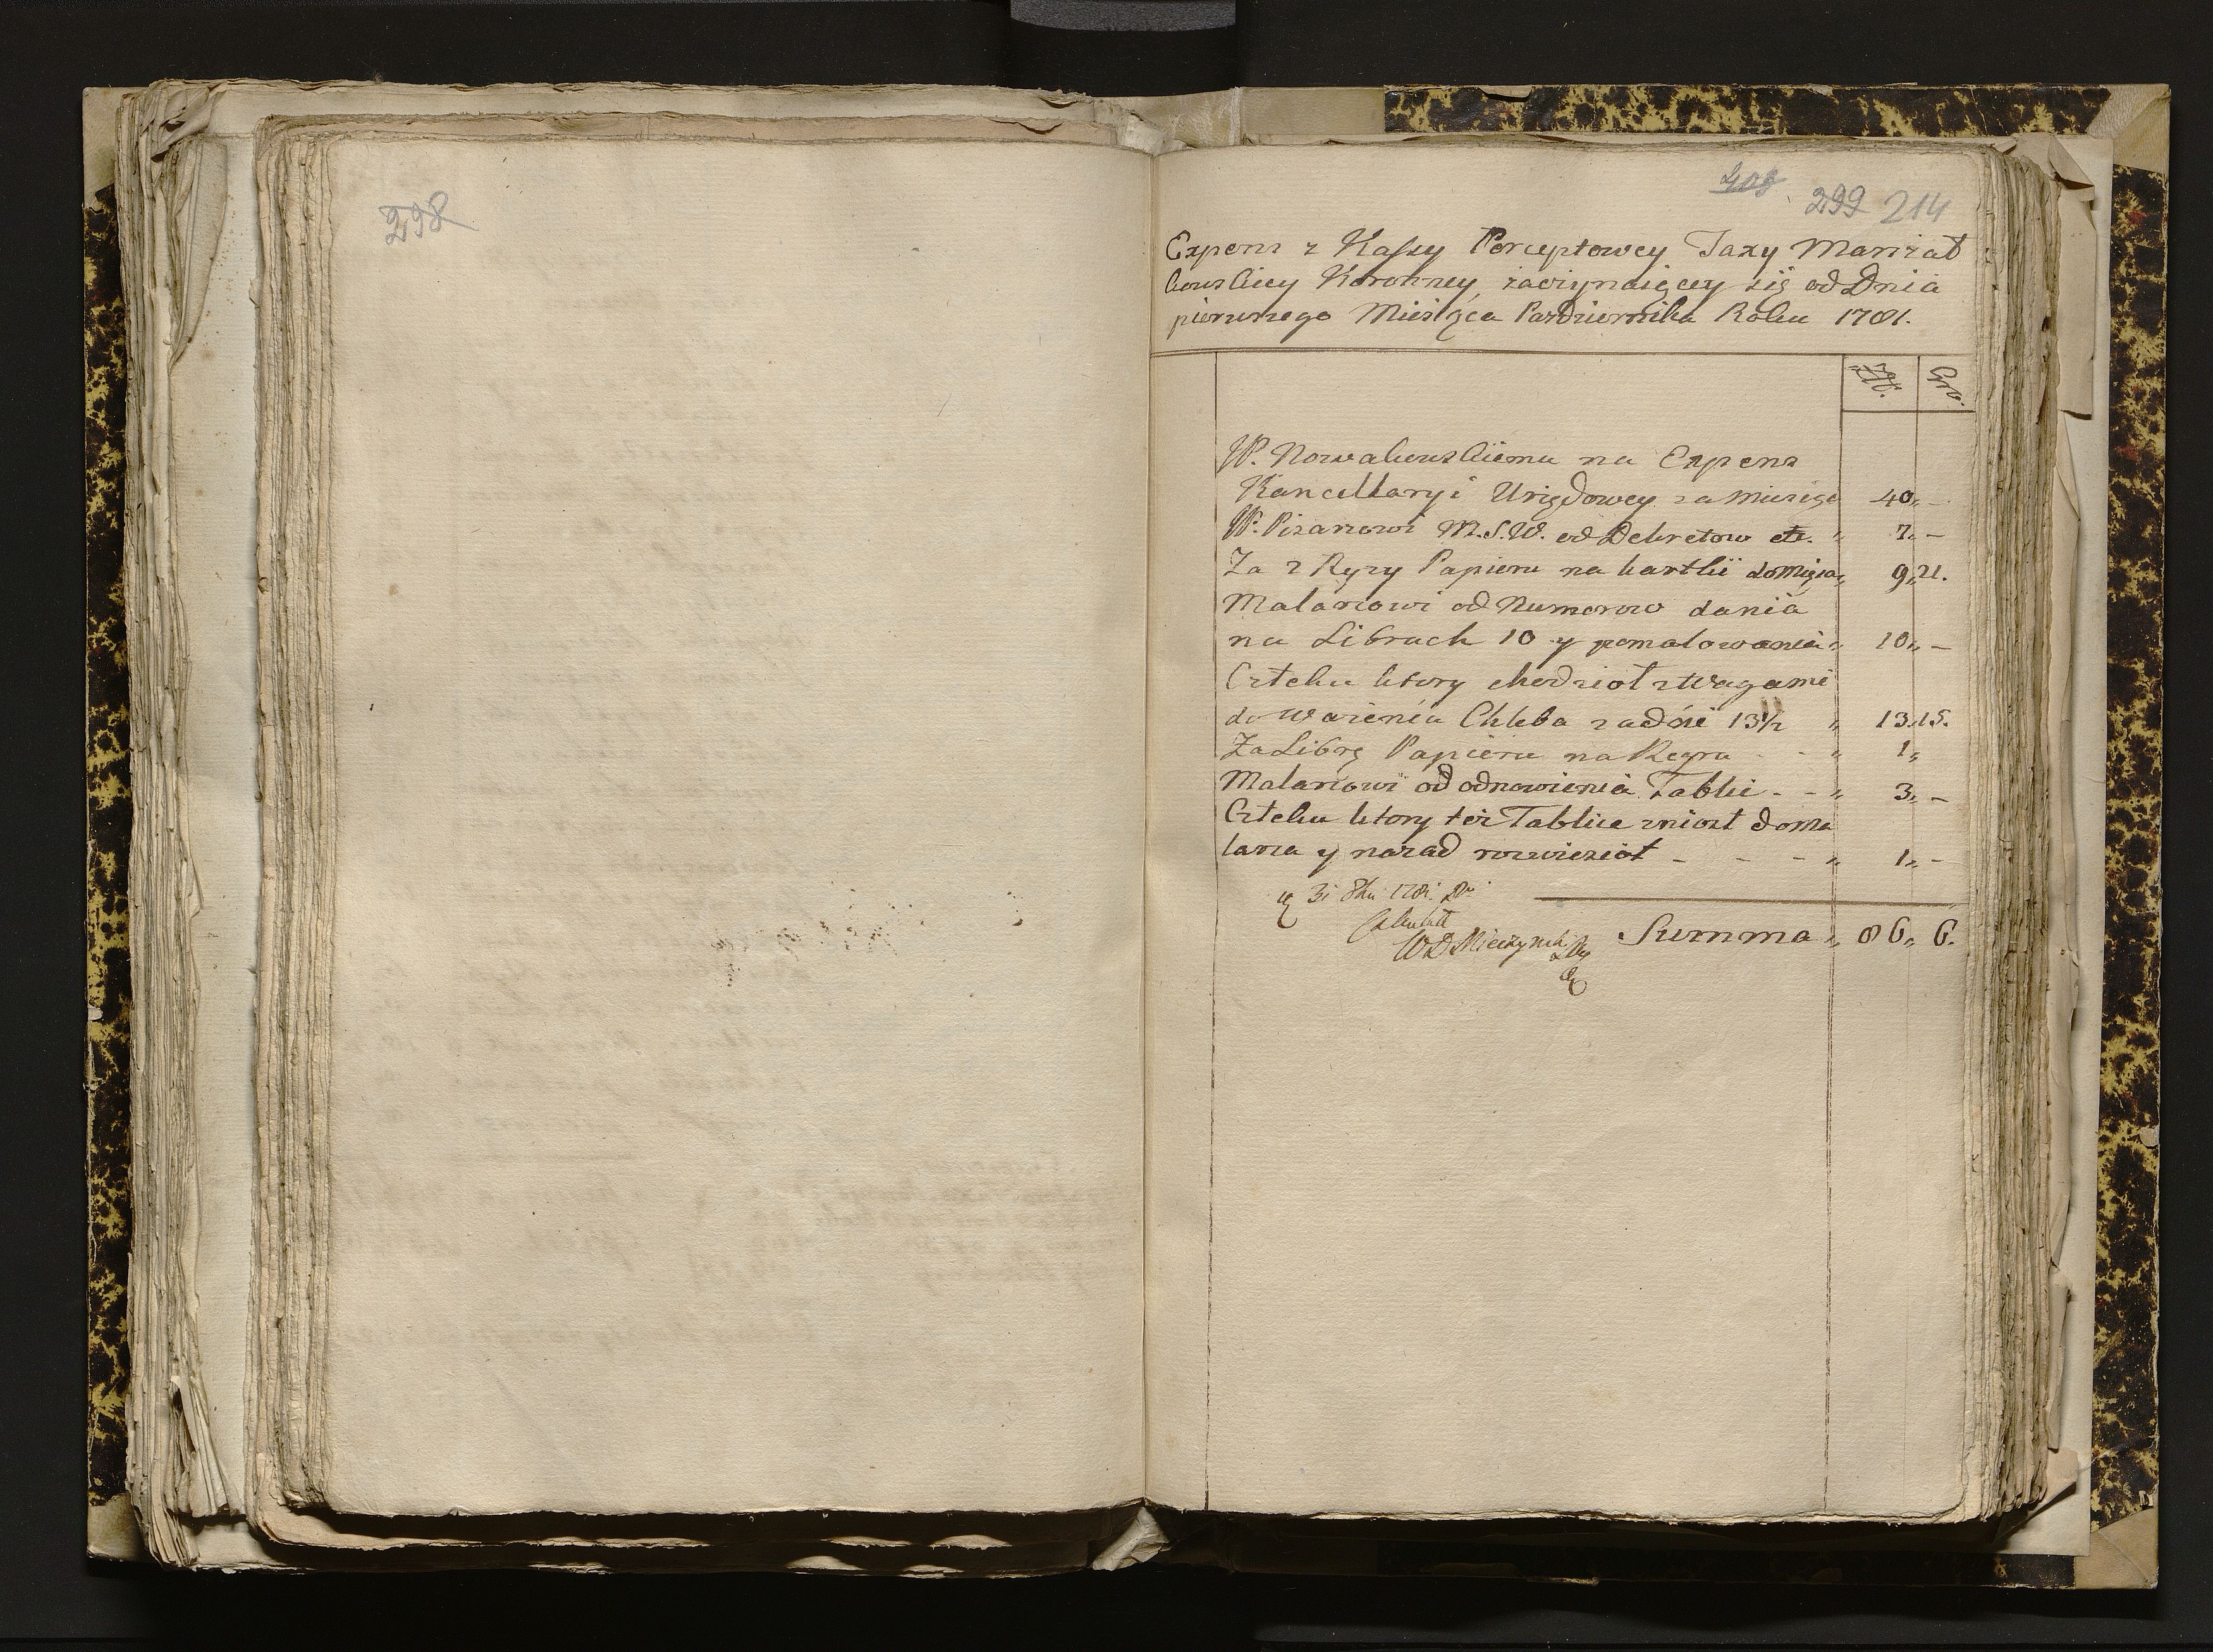 298
408
299 214
Expens z Kassy Perceptowey Taxy Marszał
kowskiey Koronney, zaczynaiącey się od Dnia
pierwszego Miesiąca Pazdziernika Roku 1781.
Złł. Gro.
W. Nowakowskiemu na Expens
Kancellaryi Urzędowey za Miesiąc 40,, -
W. Pisarzowi M.S.W. od Dekretow etc. ,, 7,, -
Za 2 Ryzy Papieru na kartki do Mięsa ,, 9,, 21.
Malarzowi od Numerow dania
na Librach 10 y pomalowania ,, 10,, -
Człeku ktory chodził z Wagami
do ważenia Chleba za dni 13 1/2 ,, 13,, 15.
Za Librę Papieru na Regra - ,, 1,,
Malarzowi od odnowienia Tablic - - ,, 3,, -
Człeku ktory też Tablice zniosł do ma
larza y nazad rozwieził - - - ,, 1,, -
31 8bris 1781.
WD Mieczynski
Summa ,, 86,, 6.